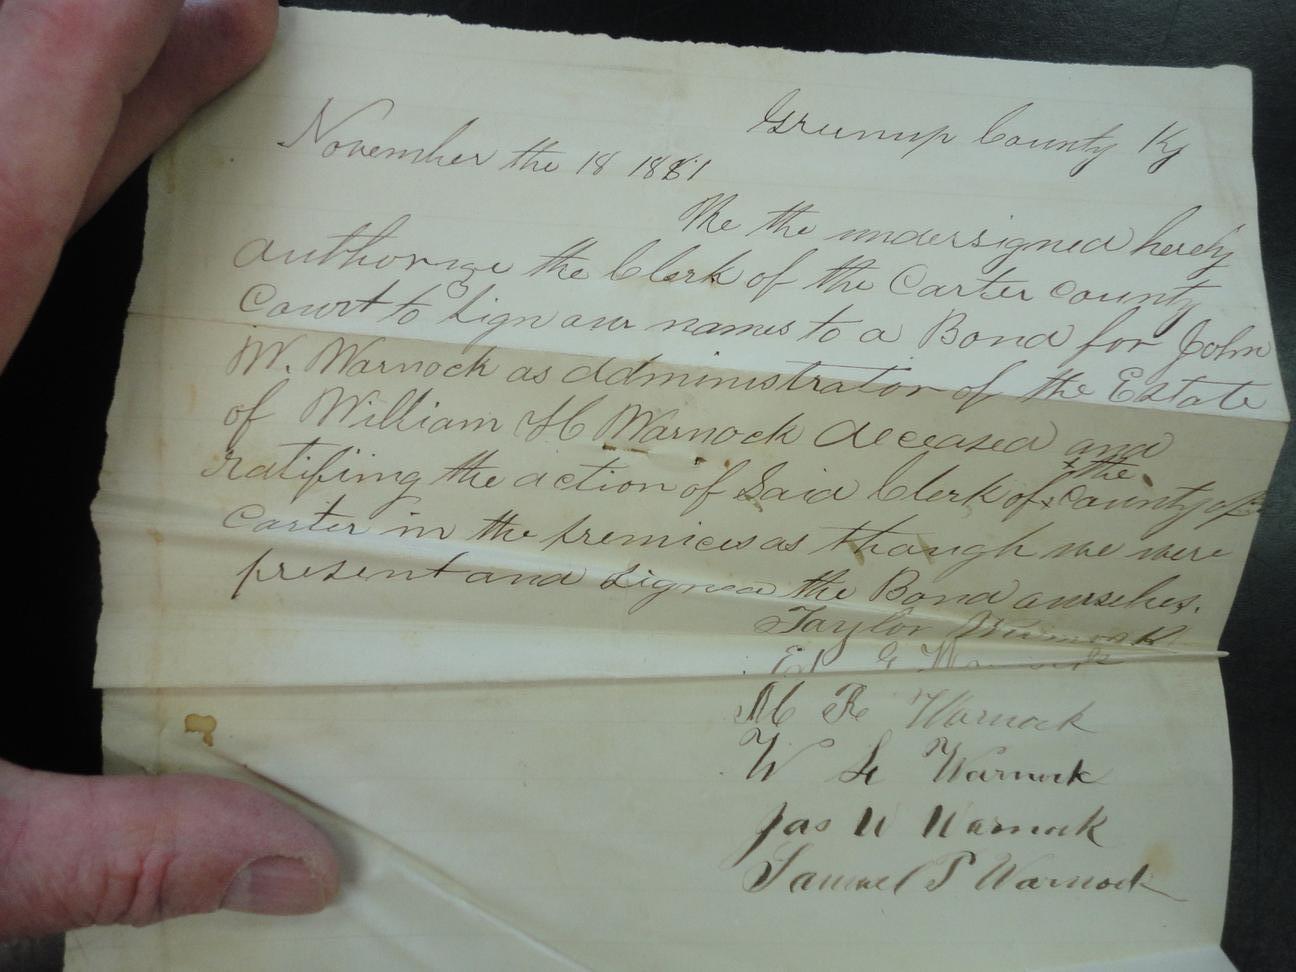 Greenup County Ky
November the 18 1881
We the undersigned hereby
authorize the Clerk of the Carter county
Court to Sign our names to a Bond for John
W. Warnock as administrator of the Estate
of William H Warnock deceased and
ratifiing the action of Said Clerk of the County of
Carter in the premices as though we were
present and Signed the Bond ourselves.
Taylor Warnock
Warnock
M R Warnock
W L Warnock
Jas W Warnock
Samuel P Warnock